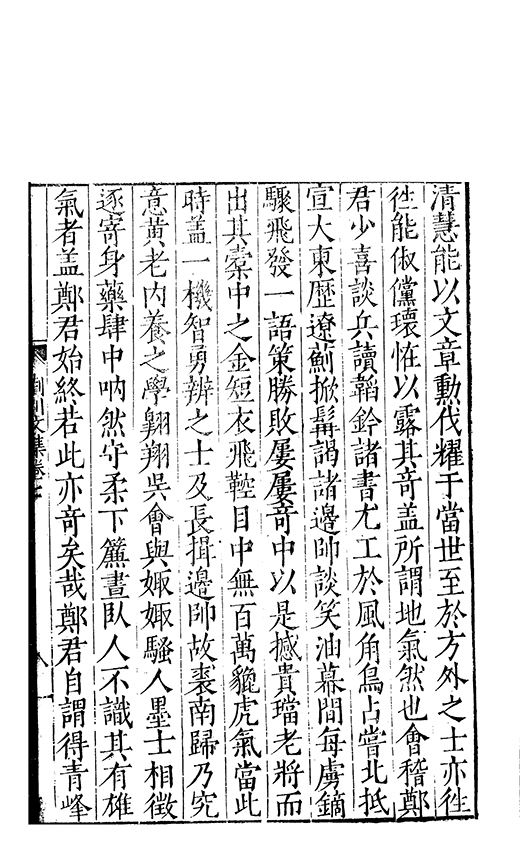 清慧能以文章勳伐耀于當世至於方外之士亦徃
徃能俶儻瓌恠以露其奇盖所謂地氣然也會稽鄭
君少喜談兵讀韜鈐諸書尤工於風角鳥占嘗北抵
宣大東歴遼薊掀髯謁諸邊帥談笑油幕間每虜鏑
驟飛發一語策勝敗屢屢竒中以是撼貴璫老將而
出其橐中之金短衣飛鞚目中無百萬貔虎氣當此
時盖一機智勇辨之士及長揖邊帥故裘南歸乃究
意黄老内養之學翱翔吳會與娵娵騷人墨士相徵
逐寄身藥肆中呐然守柔下簾晝臥人不識其有雄
氣者盖鄭君始終若此亦奇矣哉鄭君自謂得青峰
文集卷